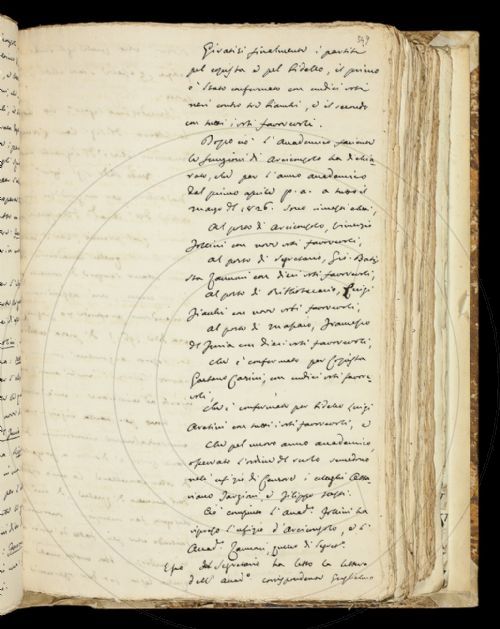 349
Giratisi finalmente i partiti
pel copista e pel bidello, il primo
è stato confermato con undici voti
neri contro tre bianchi, e il secondo
con tutti i voti favorevoli.
Dopo ciò l'Accademico facente
le funzioni di Arciconsolo ha dichia
rato, che per l'anno accademico
dal primo aprile p. a. a tutto il
marzo del 1826. sono rimasti eletti,
Al posto di Arciconsolo,
con nove voti favorevoli,
al posto di Segretario, Gio: Bati
sta Zannoni con dieci voti favorevoli,
al posto di Bibliotecario, Luigi
con nove voti favorevoli,
al posto di Massaio, Francesco
Del Furia con dieci voti favorevoli,
che è confermato per Copista
Gaetano Casini, con undici voti favore-
voli,
che è confermato per bidello Luigi
con tutti i voti favorevoli, e
Che pel nuovo anno accademico,
osservato l'ordine del ruolo
nell'ufizio di Censore i colleghi Otta
viano Targioni, e Filippo
Ciò compiuto l'Accad.
ripreso l'ufizio d'Arciconsolo, e l'
Accad. Zannoni, quello di Segret.
Il Segretario ha letto la lettera
dell'Accad. corrispondente Guglielmo